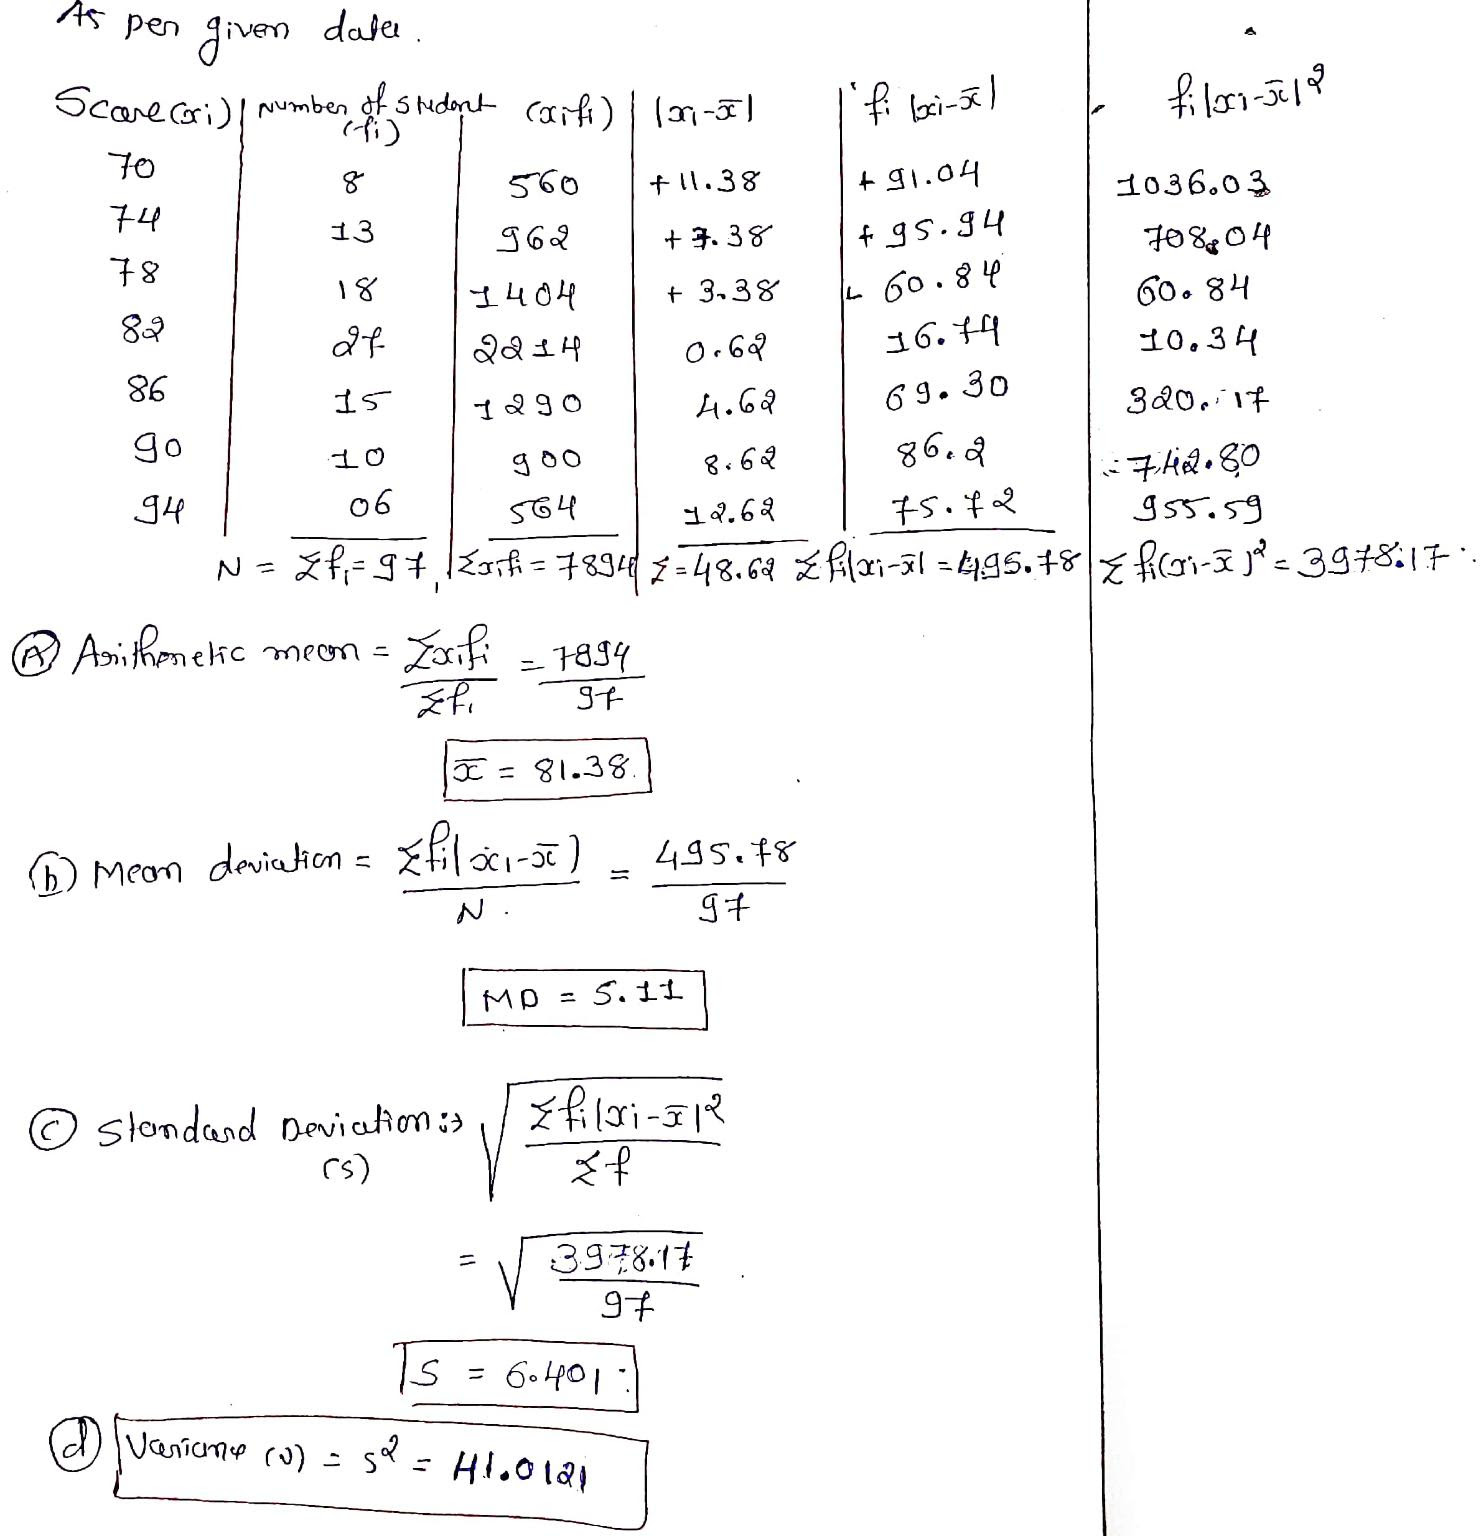 As per given data.
Score (xi) | Number of student (fi) | (xifi) | |xi-x̅| | fi |xi-x̅| | fi|xi-x̅|²
70 | 8 | 560 | +11.38 | +91.04 | 1036.03
74 | 13 | 962 | +7.38 | +95.94 | 708.04
78 | 18 | 1404 | +3.38 | 60.84 | 60.84
82 | 27 | 2214 | 0.62 | 16.74 | 10.34
86 | 15 | 1290 | 4.62 | 69.30 | 320.17
90 | 10 | 900 | 8.62 | 86.2 | 742.80
94 | 06 | 564 | 12.62 | 75.72 | 955.59
N = Σfi = 97, | Σxifi = 7894 | Σ = 48.62 Σfi|xi-x̅| = 495.78 | Σ fi(xi-x̅)² = 3978.17
(A) Arithmetic mean = Σxifi / Σfi = 7894 / 97
x̅ = 81.38.
(b) Mean deviation = Σfi|xi-x̅) / N. = 495.78 / 97
MD = 5.11
(c) Standard Deviation :⇒ √ Σfi|xi-x̅|² / Σf
(s)
= √ 3978.17 / 97
S = 6.401
(d) Variance (v) = s² = 41.0121